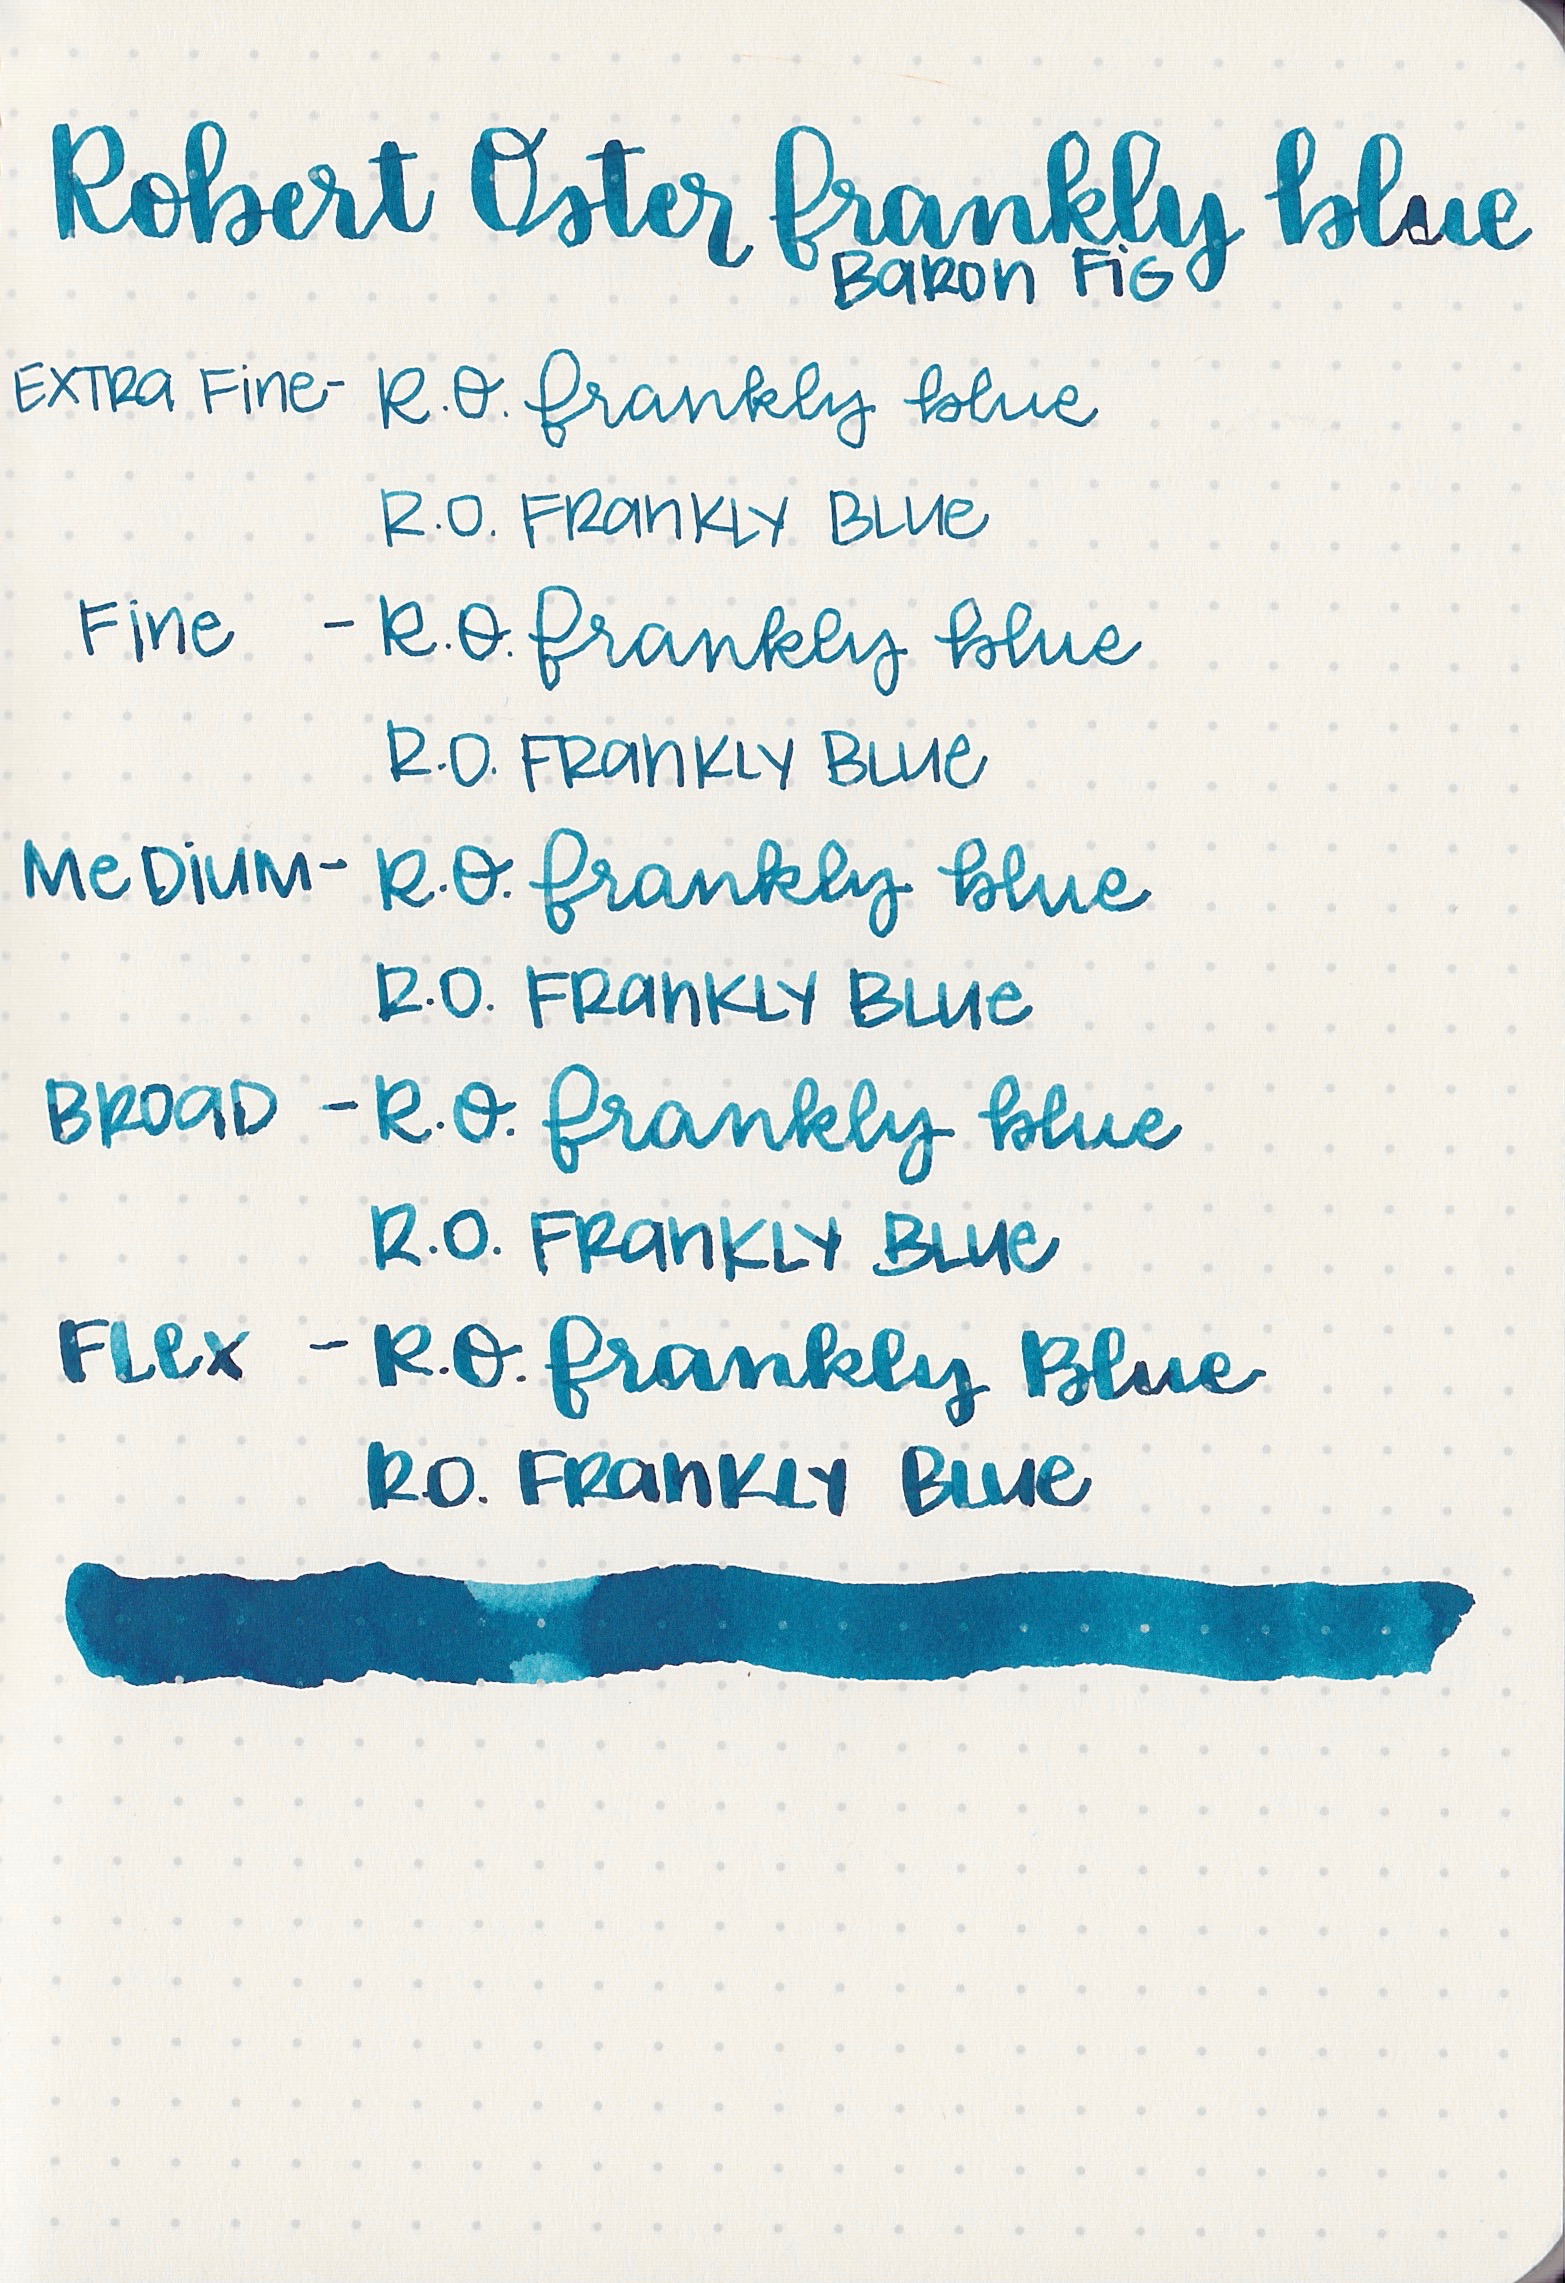 Robert Oster frankly blue
Baron Fig
Extra Fine- R.O. frankly blue
R.O. Frankly Blue
Fine - R.O. frankly blue
R.O. Frankly Blue
Medium- R.O. frankly blue
R.O. Frankly Blue
Broad - R.O. frankly blue
R.O. Frankly Blue
Flex - R.O. frankly Blue
R.O. Frankly Blue